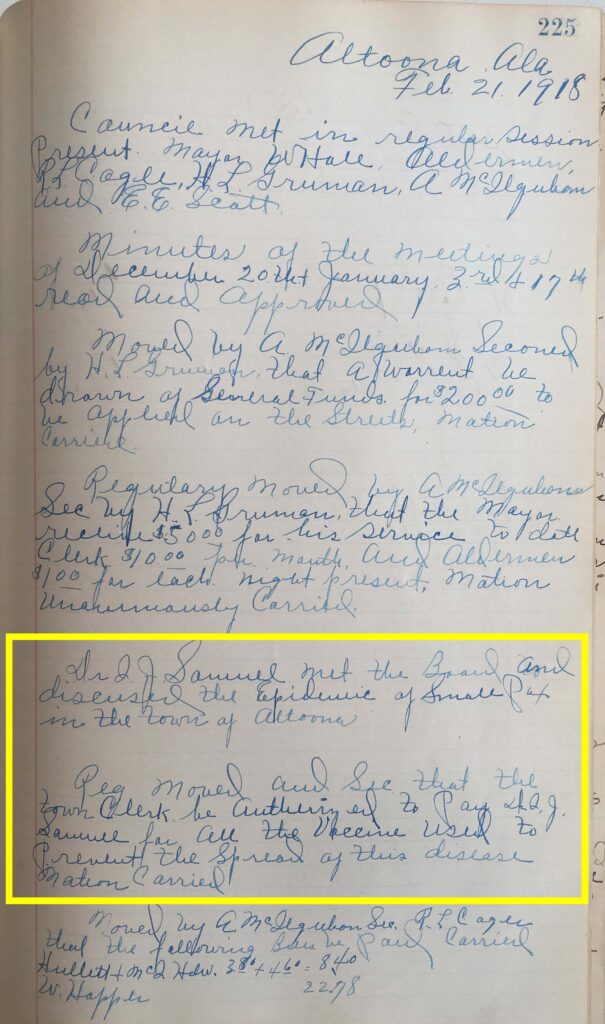 225
Altoona, Ala
Feb. 21. 1918
Council met in regular session
Present. Mayor W Hale, Aldermen,
R L Cagle, H. L. Gruman, A McIlquham
and E. E. Scott.
Minutes of the meetings
of December 20th + January, 3rd + 17th
read and approved
Moved by A McIlquham Seconed
by H. L Gruman, that a Warrent be
drawn of General Funds for $200.00 to
be applied on the Streets, Motion
Carried.
Regulary moved by A McIlquham
Sec by H. L. Gruman, that the Mayor
receive $50.00 for his service to date
Clerk $10.00 per month, and Aldermen
$1.00 for each night present, Motion
Unanimously Carried.
Dr. J Samuel met the Board and
discused the Epidemic of Small Pox
in the town of Altoona
Reg moved and Sec that the
town Clerk be Autherized to Pay Dr. J.
Samuel for All the Vaccine Used to
Prevent the Spread of this disease
Motion Carried
Moved by A. McIlquham Sec. R. L Cagle
that the following Bills be Paid Carried
Hullett + McI Hdw. 380 + 460 = 8.40
W. Happer 22.78